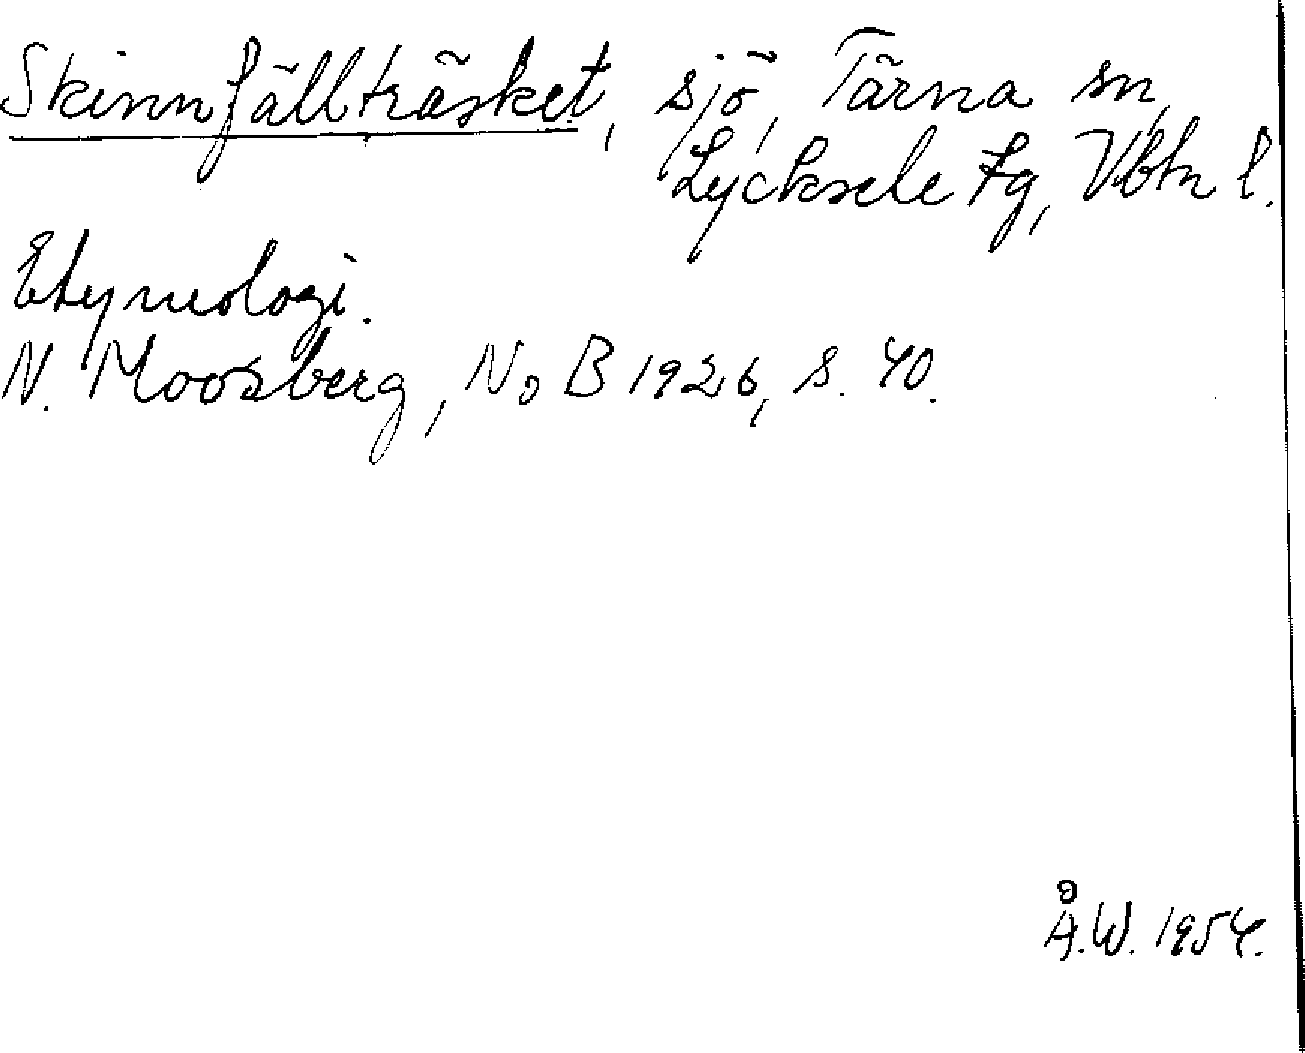 Skinnfällträsket, sjö, Tärna sn,
Lycksele tg, Vbtn l.
Etymologi.
N. Moosberg, NoB 1926, s. 40.
Å.W. 1954.